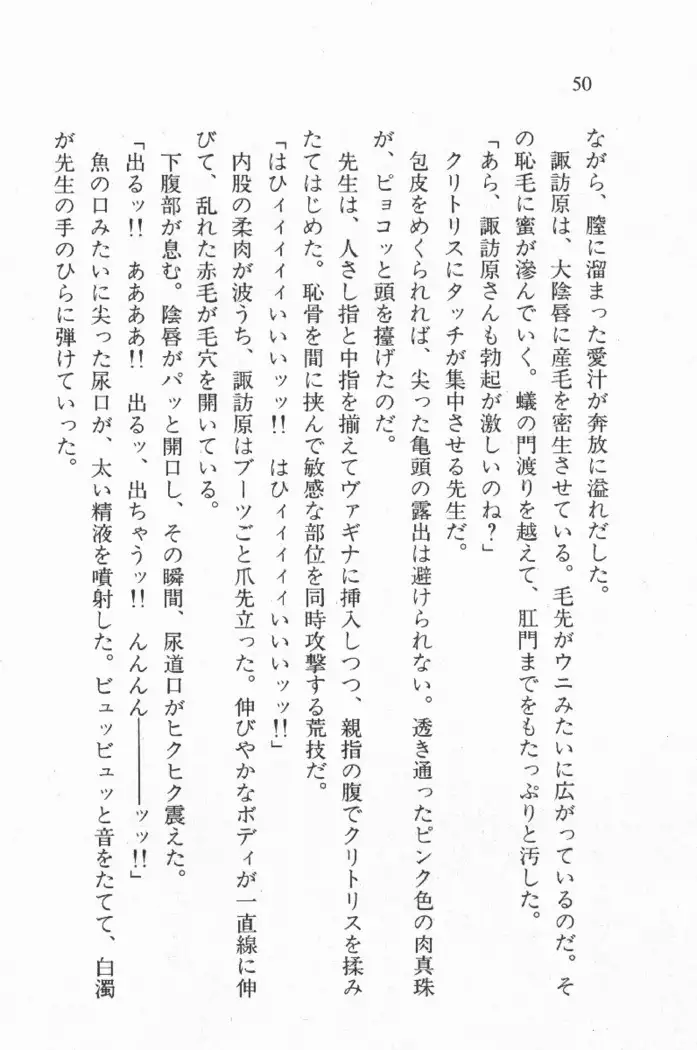 50
ながら、膣に溜まった愛汁が奔放に溢れだした。
諏訪原は、大陰唇に産毛を密生させている。毛先がウニみたいに広がっているのだ。そ
の恥毛に蜜が滲んでいく。蟻の門渡りを越えて、肛門までをもたっぷりと汚した。
「あら、諏訪原さんも勃起が激しいのね？」
クリトリスにタッチが集中させる先生だ。
包皮をめくられれば、尖った亀頭の露出は避けられない。透き通ったピンク色の肉真珠
が、ピョコッと頭を擡げたのだ。
先生は、人さし指と中指を揃えてヴァギナに挿入しつつ、親指の腹でクリトリスを揉み
たてはじめた。恥骨を間に挟んで敏感な部位を同時攻撃する荒技だ。
「はひィィィィィいいいッッ!!　はひィィィィィいいいッッ!!」
内股の柔肉が波うち、諏訪原はブーツごと爪先立った。伸びやかなボディが一直線に伸
びて、乱れた赤毛が毛穴を開いている。
下腹部が息む。陰唇がパッと開口し、その瞬間、尿道口がヒクヒク震えた。
「出るッ!!　ああああ!!　出るッ、出ちゃうッ!!　んんんん――――ッッ!!」
魚の口みたいに尖った尿口が、太い精液を噴射した。ビュッビュッと音をたてて、白濁
が先生の手のひらに弾けていった。